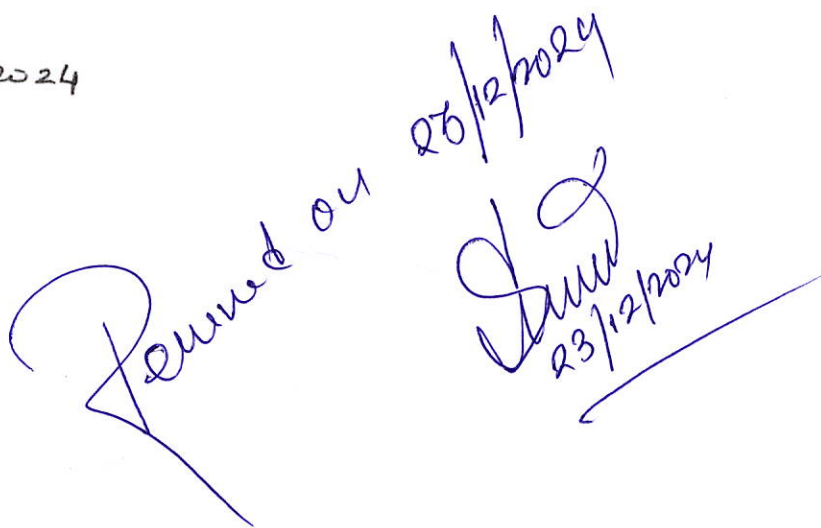 2024
Received on 23/12/2024
23/12/2024